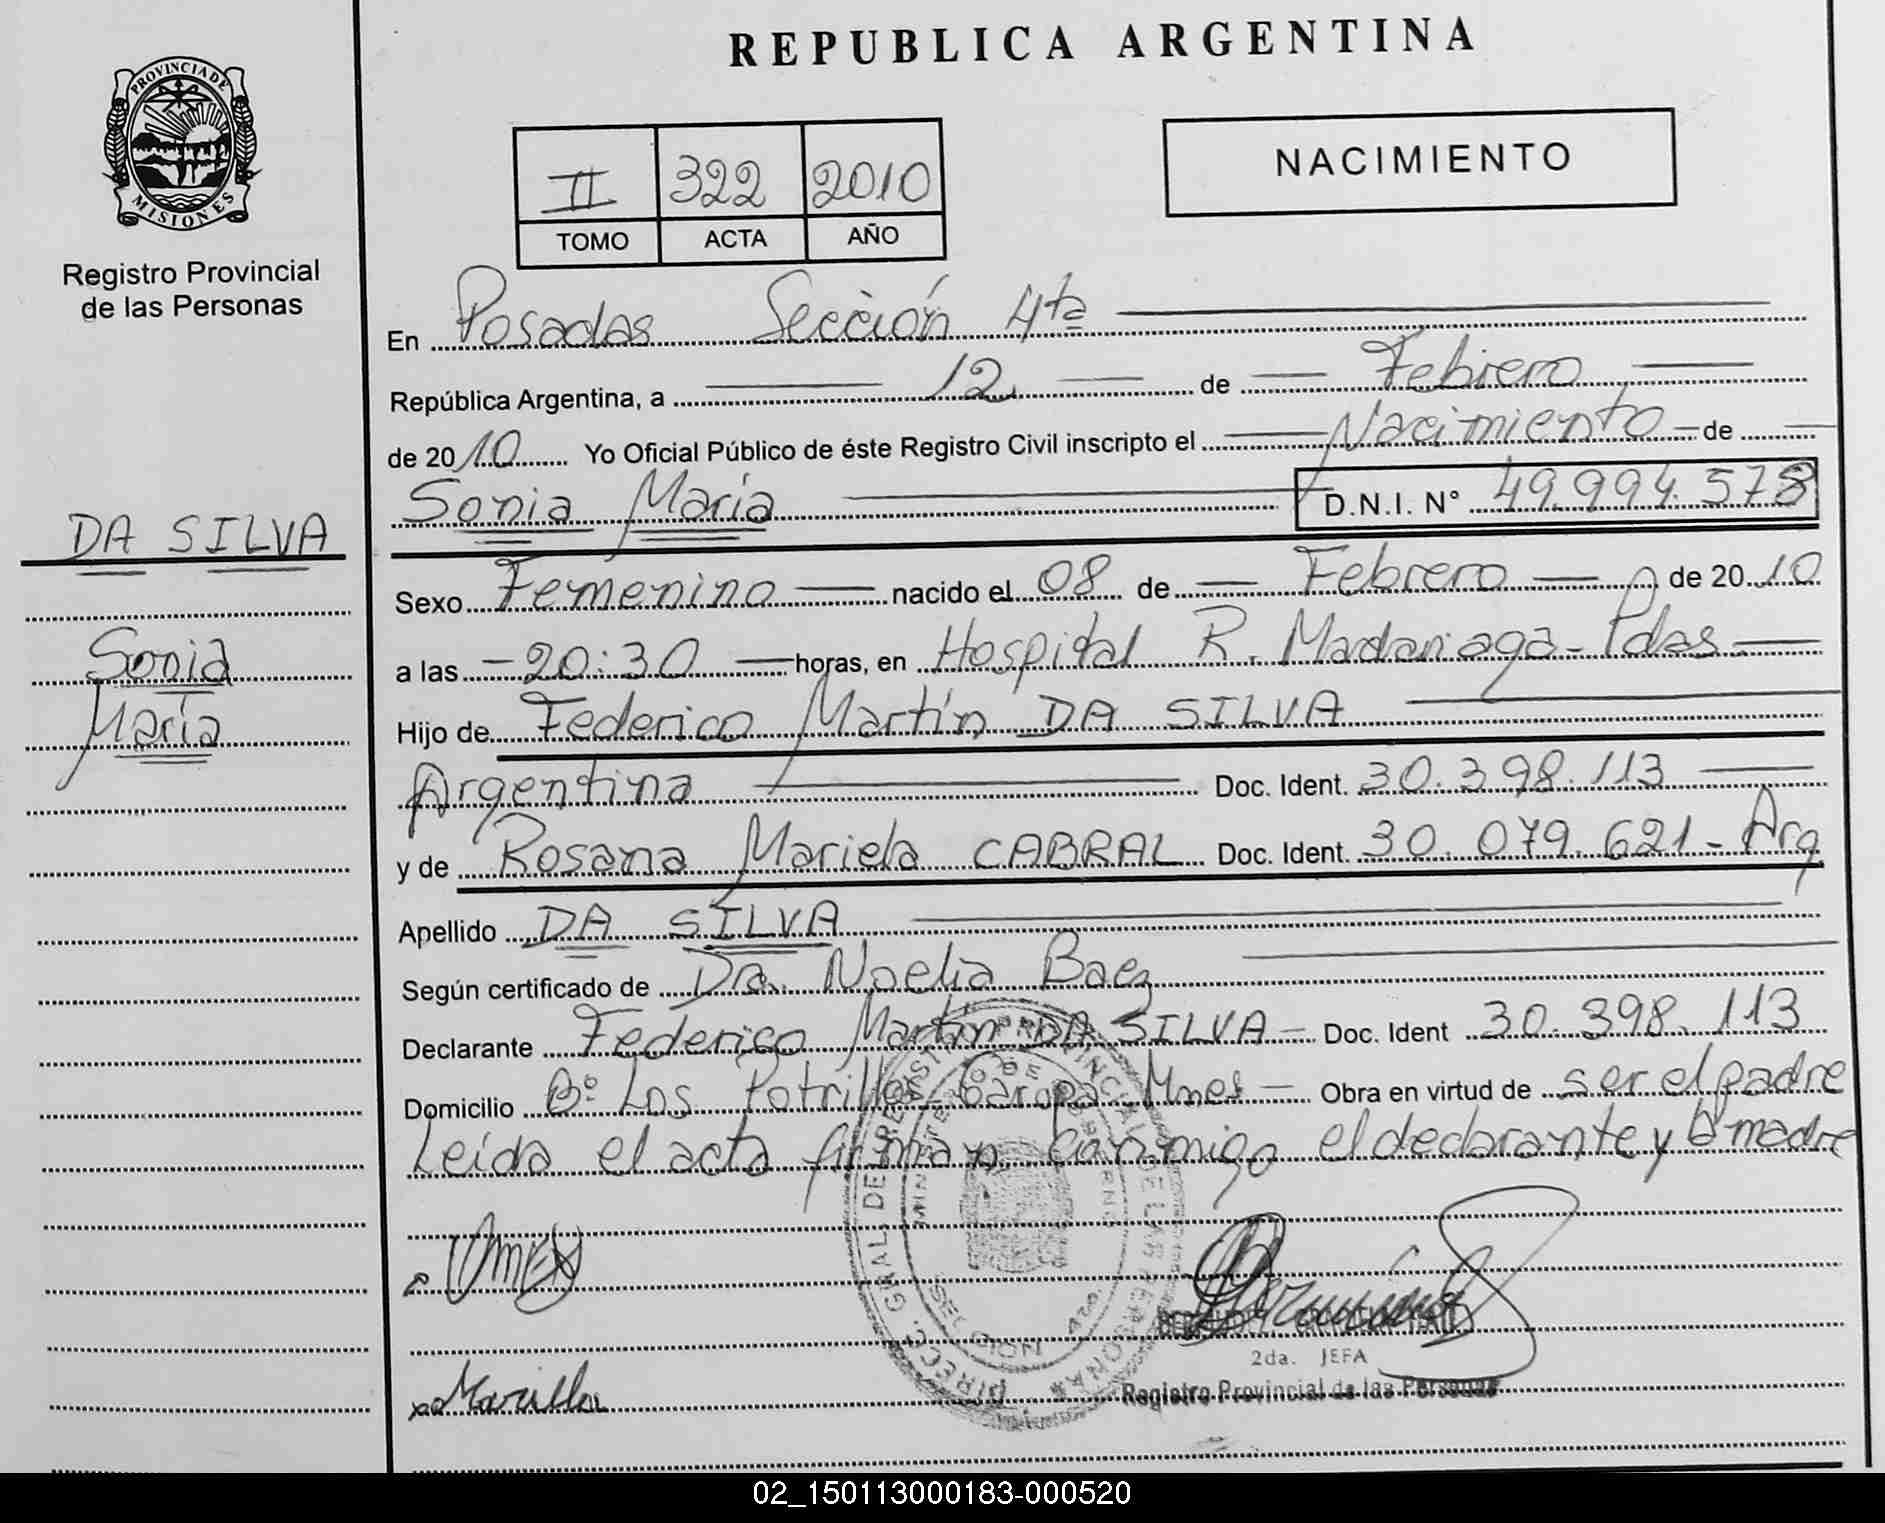 REPUBLICA ARGENTINA
PROVINCIA DE
MISIONES
Registro Provincial
de las Personas
II 322 2010
TOMO ACTA AÑO
NACIMIENTO
DA SILVA
Sonia
María
En Posadas Sección 4ta
República Argentina, a 12 de Febrero
de 2010 Yo Oficial Público de éste Registro Civil inscripto el Nacimiento de
Sonia María D.N.I. N° 49.994.578
Sexo Femenino nacido el 08 de Febrero de 2010
a las 20:30 horas, en Hospital R. Madariaga - Pdas
Hijo de Federico Martín DA SILVA
Argentina Doc. Ident. 30.398.113
y de Rosana Mariela CABRAL Doc. Ident. 30.079.621 - Arg
Apellido DA SILVA
Según certificado de Dra. Noelia Baez
Declarante Federico Martín DA SILVA Doc. Ident 30.398.113
Domicilio B° Los Potrillos, Garupá Mnes Obra en virtud de ser el padre
Leída el acta firman conmigo el declarante y la madre
2da. JEFA
Registro Provincial de las Personas
02_150113000183-000520